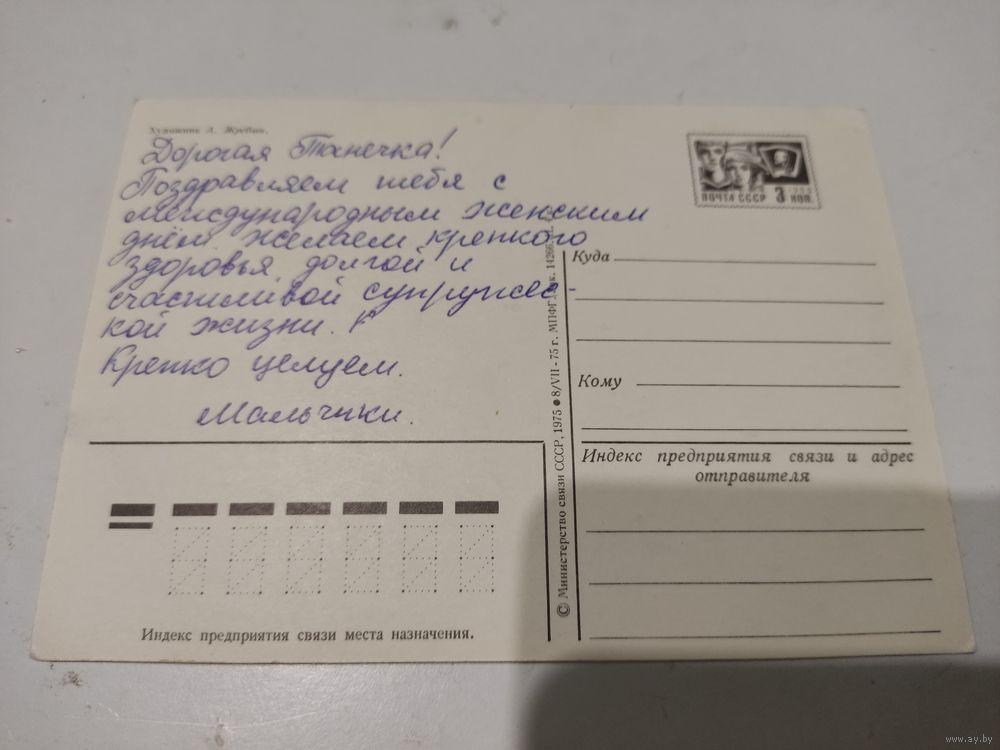 Художник А.
Дорогая Танечка!
Поздравляем тебя с
международным женским
днём. желаем крепкого
здоровья, долгой и
счастливой супружес-
кой жизни.
Крепко целуем.
Мальчики.
ПОЧТА СССР 3 КОП.
Куда
Кому
Индекс предприятия связи и адрес
отправителя
© Министерство связи СССР, 1975 ● 8/VII - 75 г. МПФГ
Индекс предприятия связи места назначения.
www.ay.by